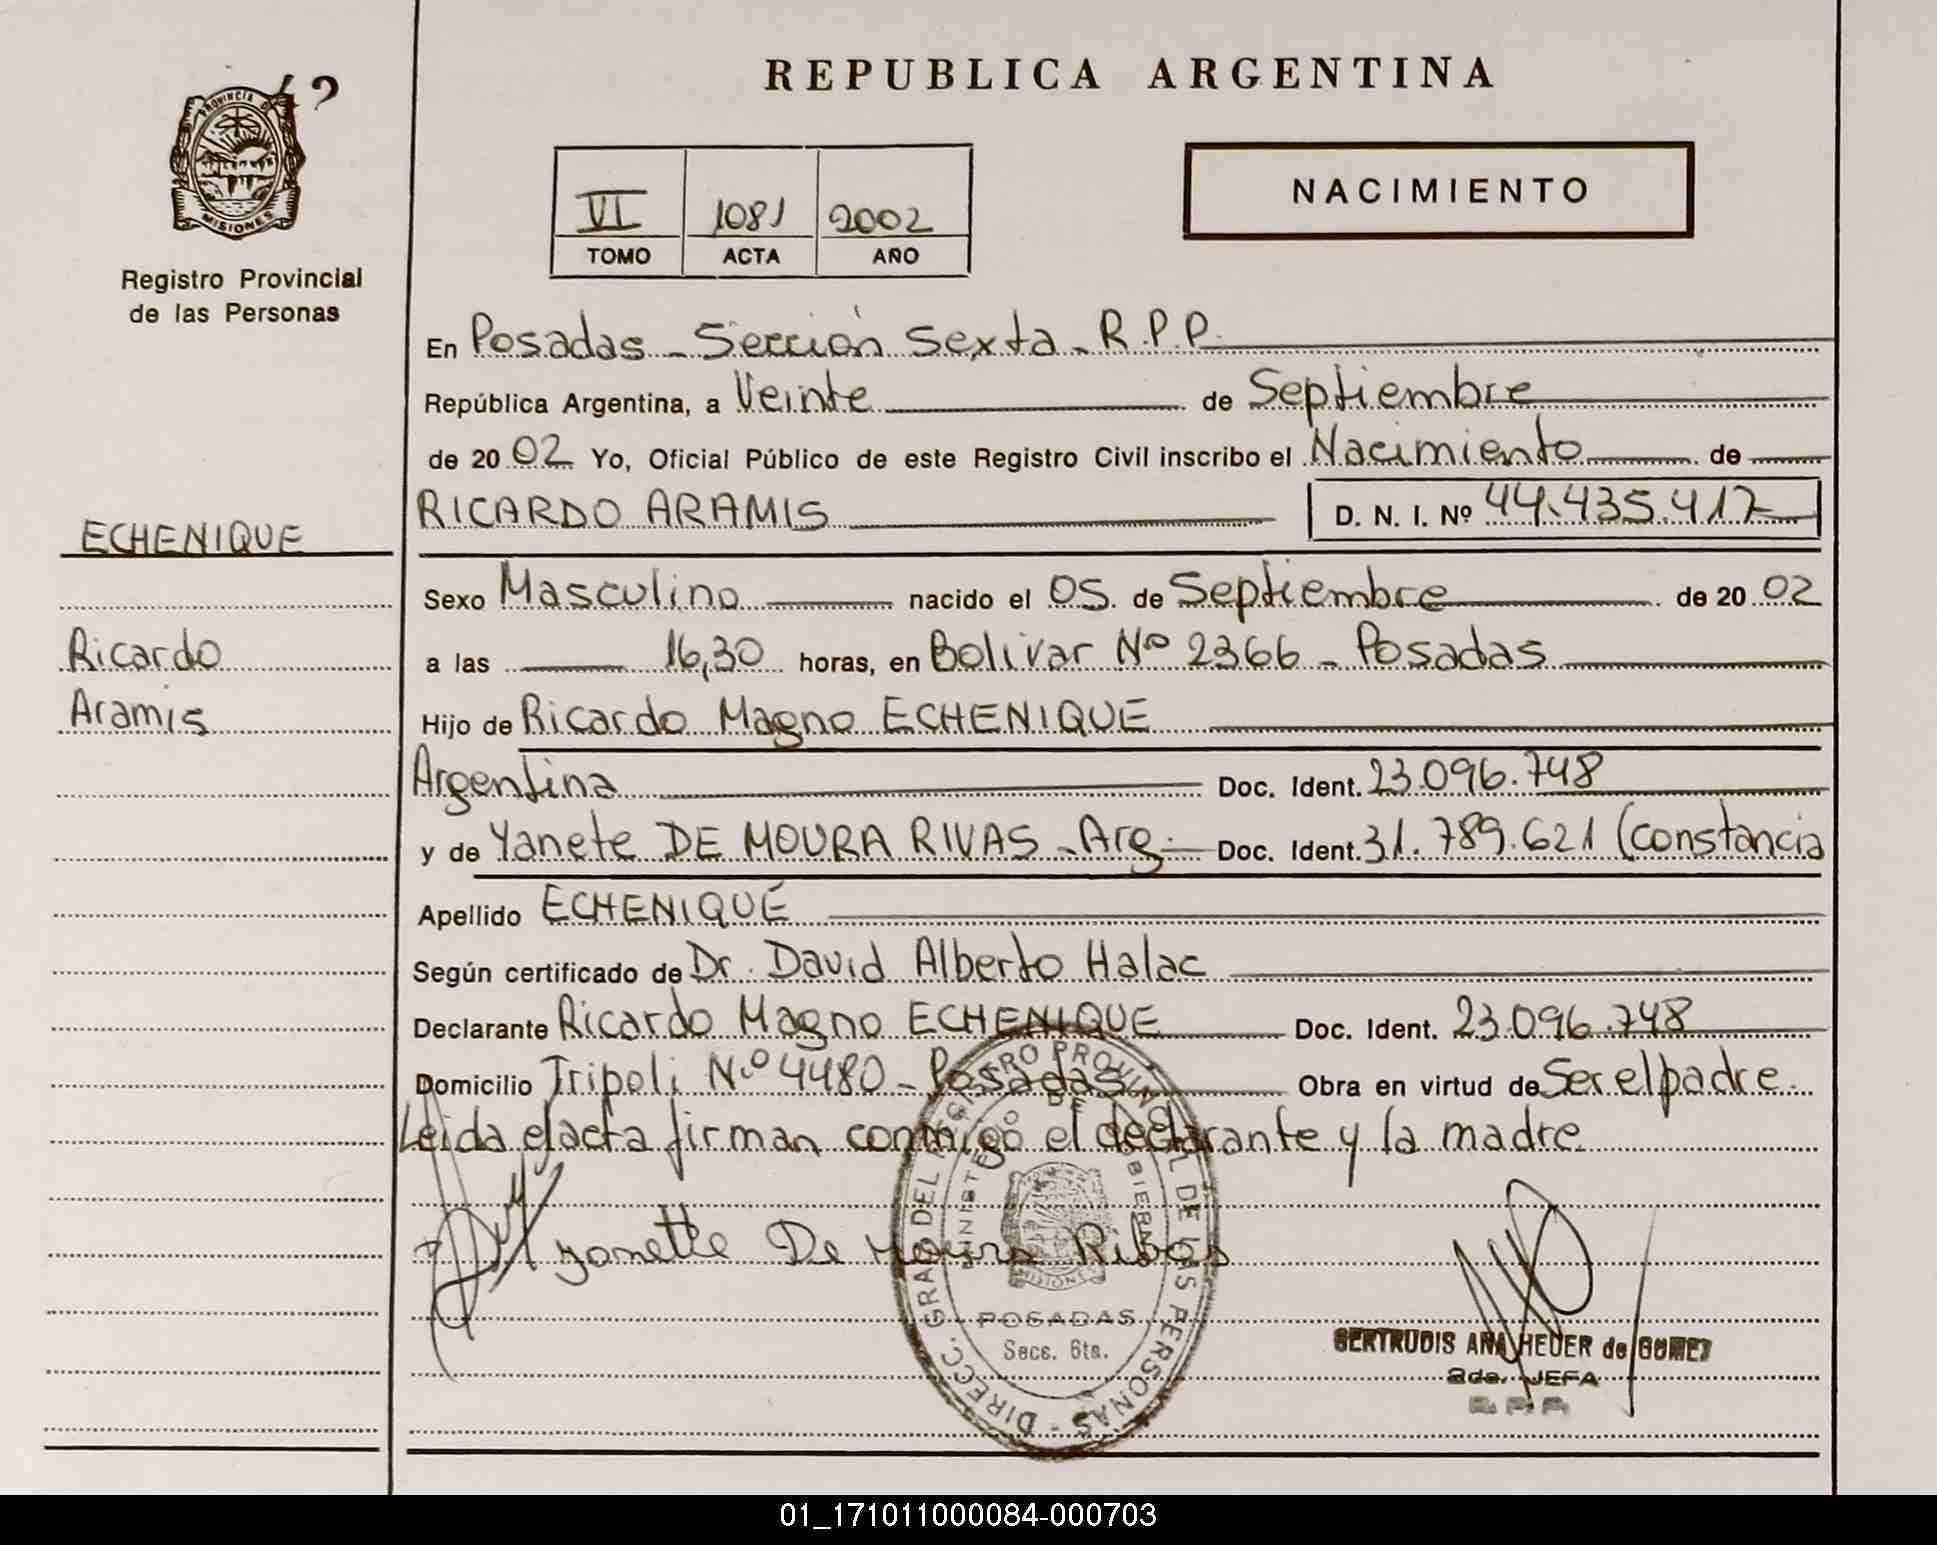 REPUBLICA ARGENTINA
PROVINCIA DE
MISIONES
Registro Provincial
de las Personas
VI 1081 2002
TOMO ACTA AÑO
NACIMIENTO
En Posadas - Sección Sexta - R.P.P.
República Argentina, a Veinte de Septiembre
de 2002 Yo, Oficial Público de este Registro Civil inscribo el Nacimiento de
RICARDO ARAMIS D. N. I. Nº 44.435.417
ECHENIQUE
Ricardo
Aramis
Sexo Masculino nacido el 05 de Septiembre de 2002
a las 16,30 horas, en Bolivar Nº 2366 - Posadas
Hijo de Ricardo Magno ECHENIQUE
Argentina Doc. Ident. 23.096.748
y de Yanete DE MOURA RIVAS - Arg. Doc. Ident. 31.789.621 (constancia
Apellido ECHENIQUE
Según certificado de Dr. David Alberto Halac
Declarante Ricardo Magno ECHENIQUE Doc. Ident. 23.096.748
Domicilio Tripoli Nº 4480 - Posadas Obra en virtud de Ser el padre.
Leida el acta firman conmigo el declarante y la madre
yanette De Moura Ribas
DIRECC. GRAD DEL REGISTRO PROVINCIAL DE LAS PERSONAS
MINISTERIO DE GOBIERNO
MISIONES
POSADAS
Secc. 6ta.
GERTRUDIS ANA HEUER de GOMEZ
2da. JEFA
R. P. P.
01_171011000084-000703